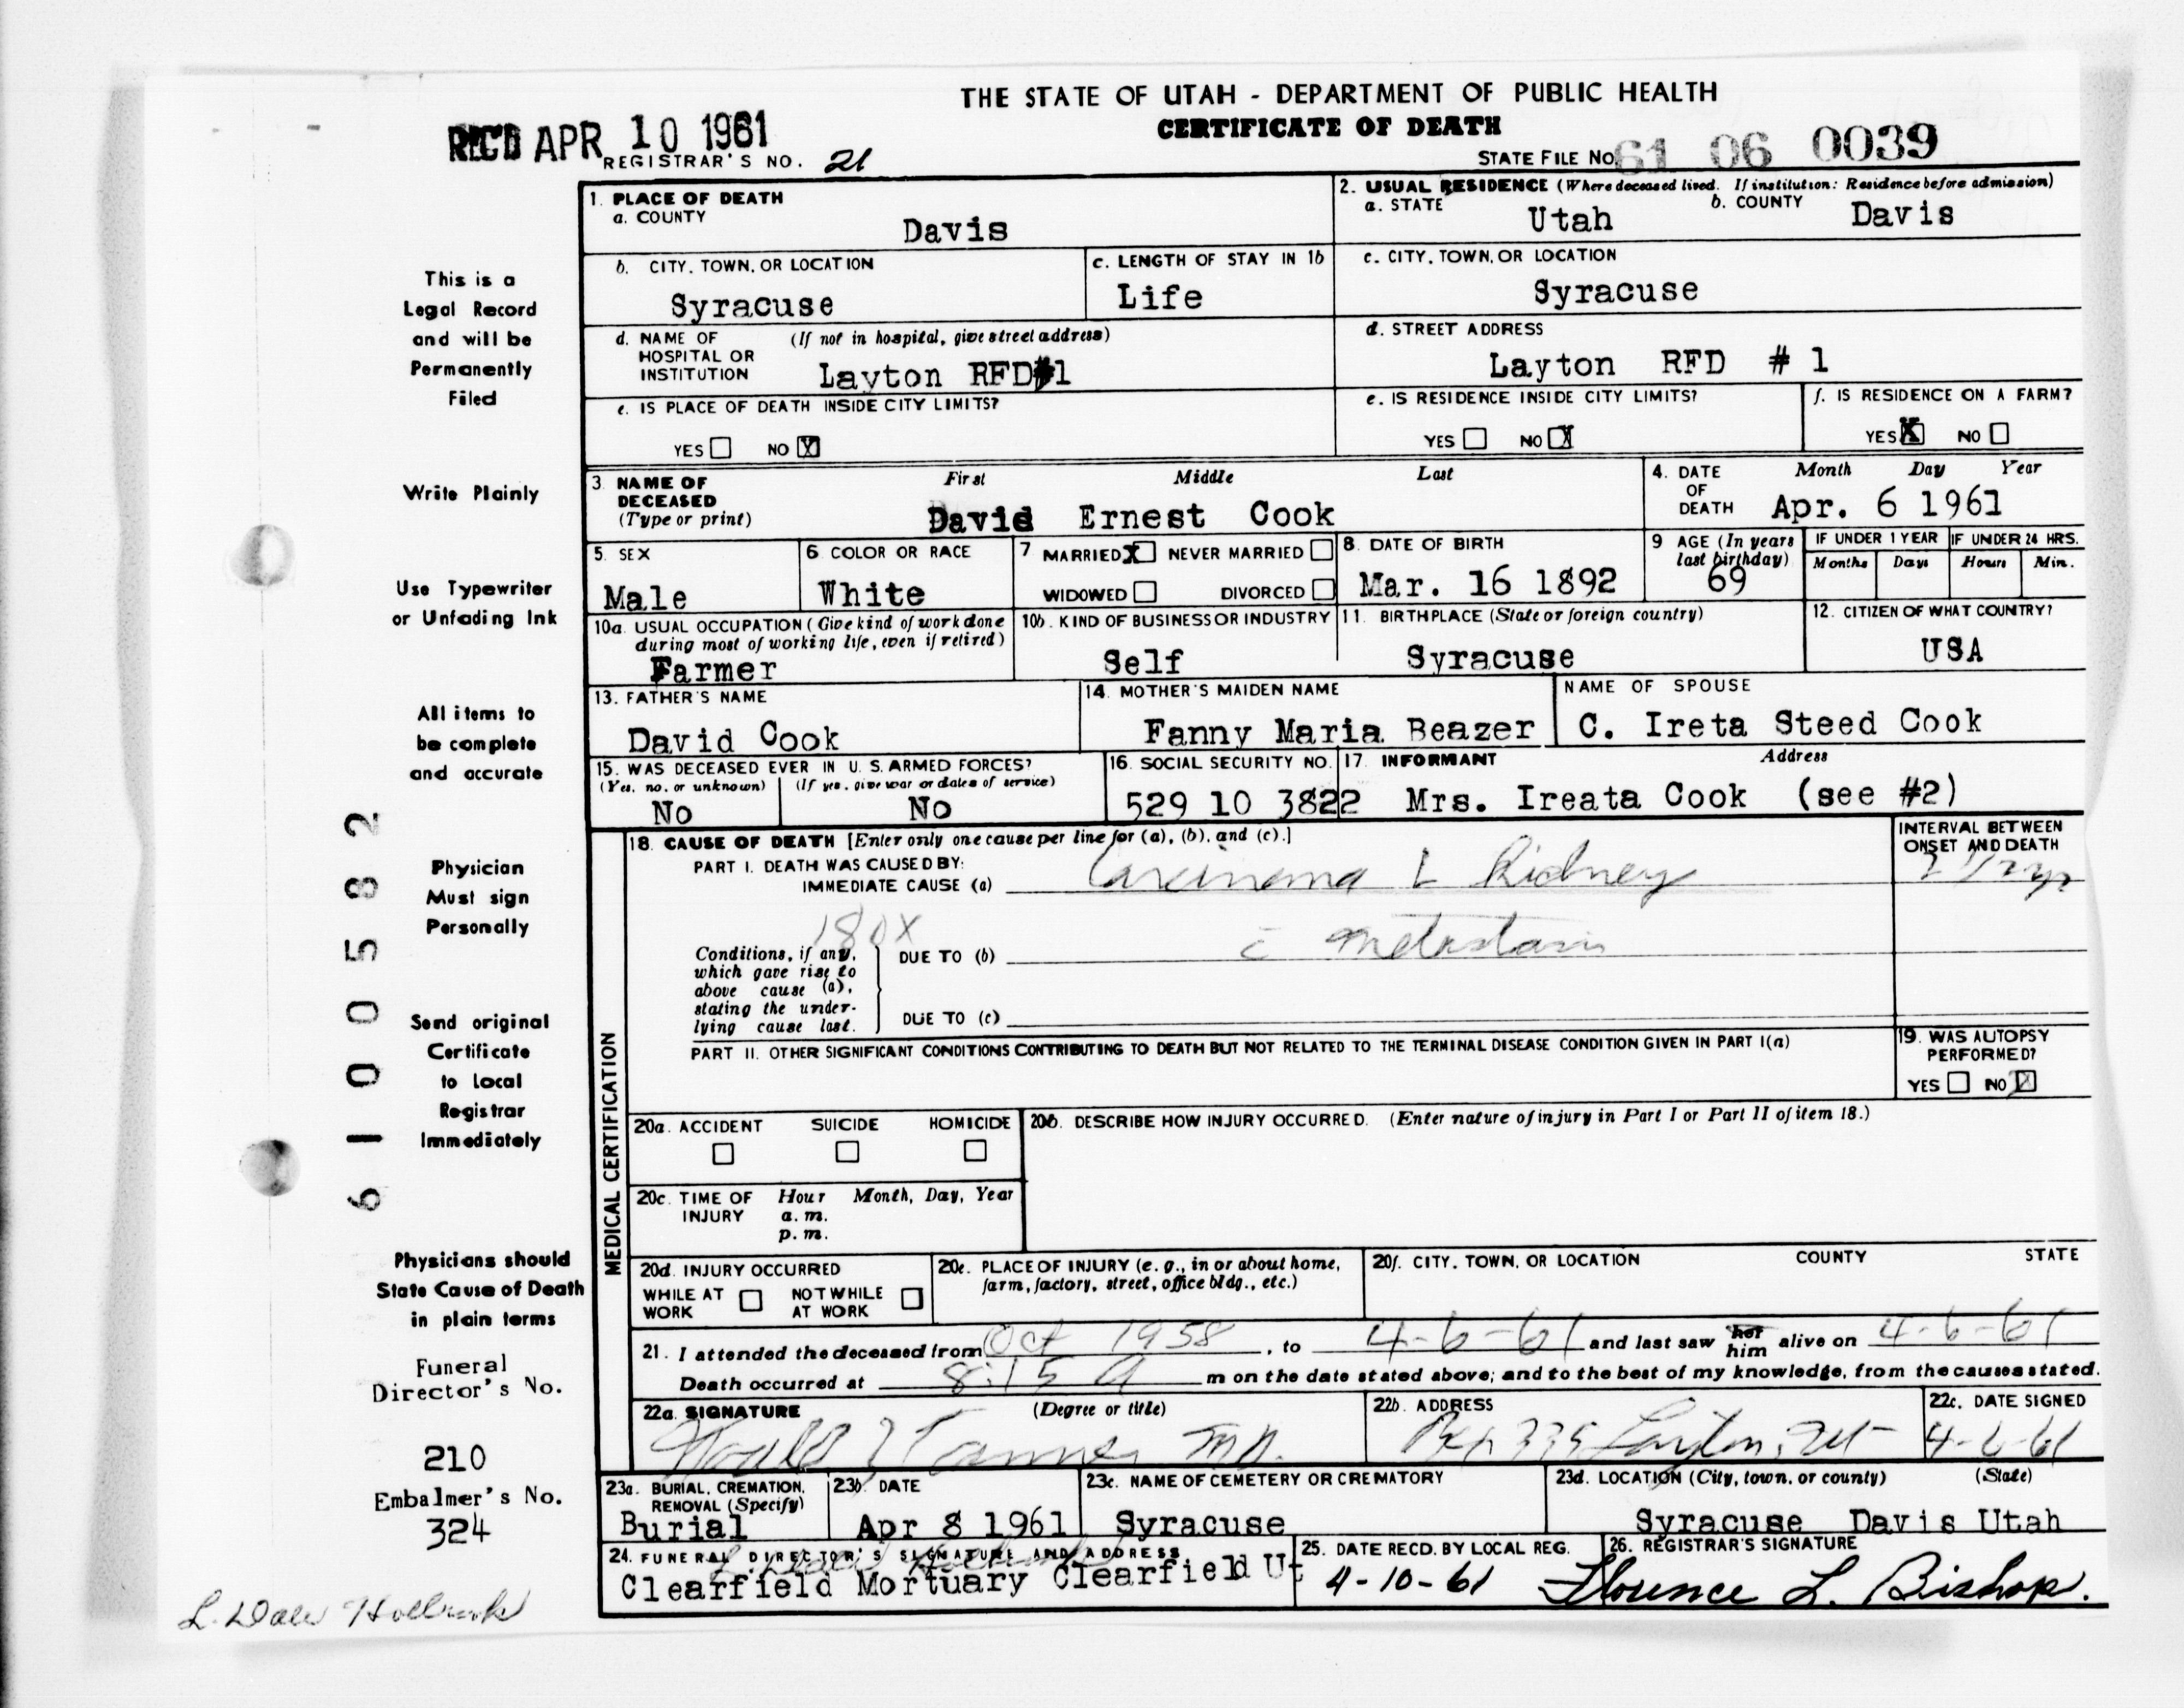 THE STATE OF UTAH - DEPARTMENT OF PUBLIC HEALTH
CERTIFICATE OF DEATH
REC'D APR 10 1961
REGISTRAR'S NO. 21
STATE FILE NO. 61 06 0039
1. PLACE OF DEATH
a. COUNTY
Davis
2. USUAL RESIDENCE (Where deceased lived. If institution: Residence before admission)
a. STATE Utah b. COUNTY Davis
b. CITY, TOWN, OR LOCATION
Syracuse
c. LENGTH OF STAY IN 1b
Life
c. CITY, TOWN, OR LOCATION
Syracuse
d. NAME OF (If not in hospital, give street address)
HOSPITAL OR
INSTITUTION Layton RFD#1
d. STREET ADDRESS
Layton RFD # 1
e. IS PLACE OF DEATH INSIDE CITY LIMITS?
YES NO X
e. IS RESIDENCE INSIDE CITY LIMITS?
YES NO X
f. IS RESIDENCE ON A FARM?
YES X NO
3. NAME OF DECEASED (Type or print)
First Middle Last
David Ernest Cook
4. DATE OF DEATH
Month Day Year
Apr. 6 1961
5. SEX
Male
6. COLOR OR RACE
White
7 MARRIED X NEVER MARRIED
WIDOWED DIVORCED
8. DATE OF BIRTH
Mar. 16 1892
9 AGE (In years last birthday)
69
IF UNDER 1 YEAR
Months Days
IF UNDER 24 HRS.
Hours Min.
10a. USUAL OCCUPATION (Give kind of work done
during most of working life, even if retired)
Farmer
10b. KIND OF BUSINESS OR INDUSTRY
Self
11. BIRTHPLACE (State or foreign country)
Syracuse
12. CITIZEN OF WHAT COUNTRY?
USA
13. FATHER'S NAME
David Cook
14. MOTHER'S MAIDEN NAME
Fanny Maria Beazer
NAME OF SPOUSE
C. Ireta Steed Cook
15. WAS DECEASED EVER IN U. S. ARMED FORCES?
(Yes, no, or unknown) (If yes, give war or dates of service)
No No
16. SOCIAL SECURITY NO.
529 10 3822
17. INFORMANT Address
Mrs. Ireata Cook (see #2)
MEDICAL CERTIFICATION
18. CAUSE OF DEATH [Enter only one cause per line for (a), (b), and (c).]
PART I. DEATH WAS CAUSED BY:
IMMEDIATE CAUSE (a) Carcinoma L Kidney
INTERVAL BETWEEN
ONSET AND DEATH
2 1/2 yr
180X
Conditions, if any,
which gave rise to
above cause (a),
stating the under-
lying cause last.
DUE TO (b) c̄ metastasis
DUE TO (c)
PART II. OTHER SIGNIFICANT CONDITIONS CONTRIBUTING TO DEATH BUT NOT RELATED TO THE TERMINAL DISEASE CONDITION GIVEN IN PART I(a)
19. WAS AUTOPSY
PERFORMED?
YES NO X
20a. ACCIDENT SUICIDE HOMICIDE
20b. DESCRIBE HOW INJURY OCCURRED. (Enter nature of injury in Part I or Part II of item 18.)
20c. TIME OF INJURY
Hour Month, Day, Year
a. m.
p. m.
20d. INJURY OCCURRED
WHILE AT WORK NOT WHILE AT WORK
20e. PLACE OF INJURY (e. g., in or about home,
farm, factory, street, office bldg., etc.)
20f. CITY, TOWN, OR LOCATION COUNTY STATE
21. I attended the deceased from Oct 1958, to 4-6-61 and last saw her him alive on 4-6-61
Death occurred at 8:15 A m on the date stated above; and to the best of my knowledge, from the causes stated.
22a. SIGNATURE (Degree or title)
Tanner MD.
22b. ADDRESS
Box 335 Layton, Ut
22c. DATE SIGNED
4-6-61
23a. BURIAL, CREMATION,
REMOVAL (Specify)
Burial
23b. DATE
Apr 8 1961
23c. NAME OF CEMETERY OR CREMATORY
Syracuse
23d. LOCATION (City, town, or county) (State)
Syracuse Davis Utah
24. FUNERAL DIRECTOR'S SIGNATURE AND ADDRESS
Clearfield Mortuary Clearfield Ut
25. DATE RECD. BY LOCAL REG.
4-10-61
26. REGISTRAR'S SIGNATURE
Florence L. Bishop.
This is a
Legal Record
and will be
Permanently
Filed
Write Plainly
Use Typewriter
or Unfading Ink
All items to
be complete
and accurate
Physician
Must sign
Personally
Send original
Certificate
to Local
Registrar
Immediately
Physicians should
State Cause of Death
in plain terms
Funeral
Director's No.
210
Embalmer's No.
324
L. Dale Holbrook
6100582